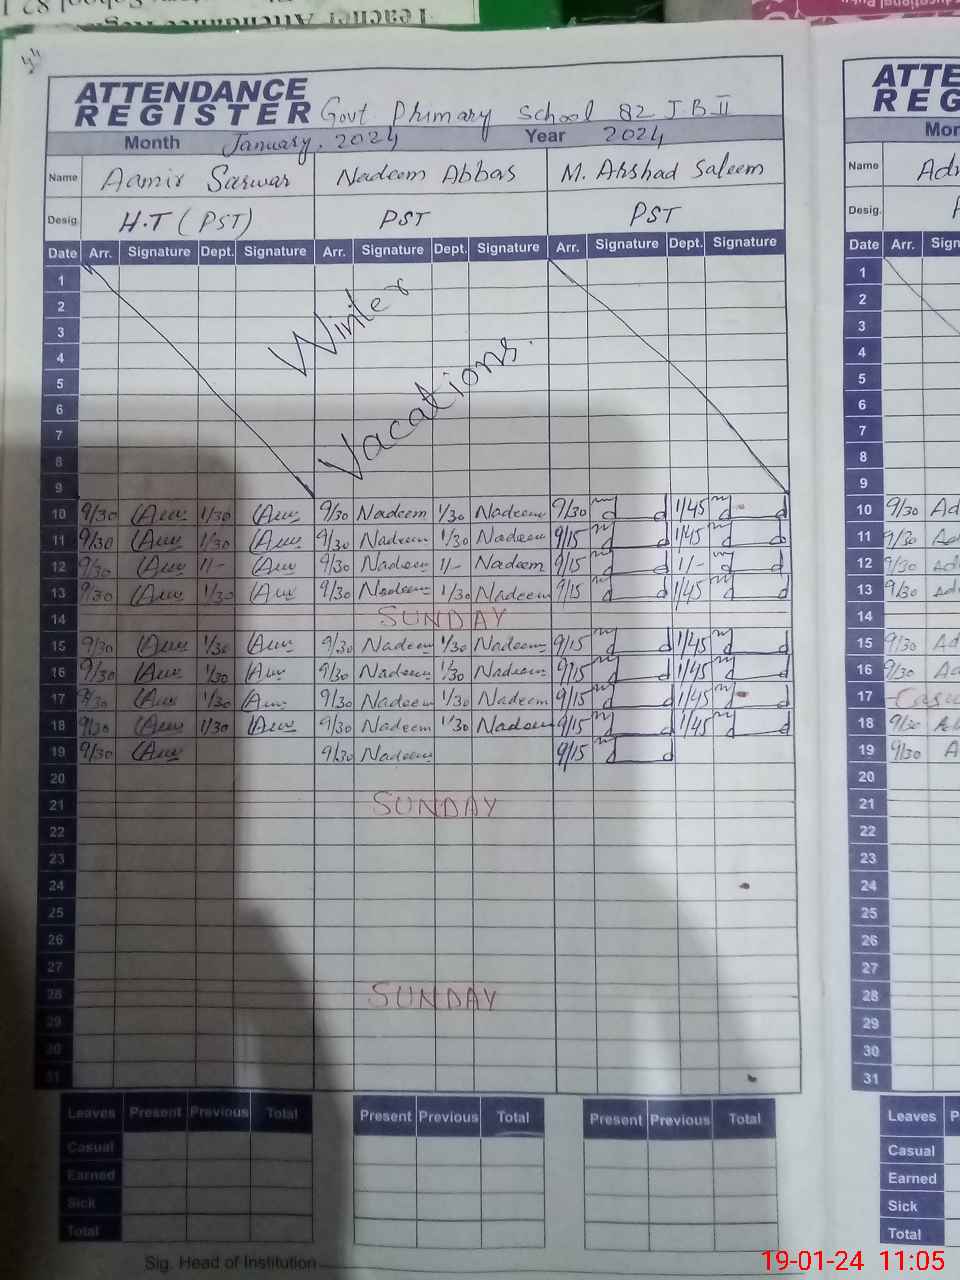 Teacher Attendance Reg
School 82 J
ATTENDANCE
REGISTER Govt Phimary School 82 J.B II
Month January. 2024 Year 2024
Name Aamir Sarwar Nadeem Abbas M. Ahshad Saleem
Desig. H.T (PST) PST PST
Date Arr. Signature Dept. Signature Arr. Signature Dept. Signature Arr. Signature Dept. Signature
1
2
3
4
5
6
7
8
9
Winter
Vacations.
10 9/30 1/30 9/30 Nadeem 1/30 Nadeem 9/30 1/45
11 9/30 1/30 9/30 Nadeem 1/30 Nadeem 9/15 1/45
12 9/30 1/- 9/30 Nadeem 1/- Nadeem 9/15 1/-
13 9/30 1/30 9/30 Nadeem 1/30 Nadeem 9/15 1/45
14 SUNDAY
15 9/30 1/30 9/30 Nadeem 1/30 Nadeem 9/15 1/45
16 9/30 1/30 9/30 Nadeem 1/30 Nadeem 9/15 1/45
17 9/30 1/30 9/30 Nadeem 1/30 Nadeem 9/15 1/45
18 9/30 1/30 9/30 Nadeem 1/30 Nadeem 9/15 1/45
19 9/30 9/30 Nadeem 9/15
20
21 SUNDAY
22
23
24
25
26
27
28 SUNDAY
29
30
31
Leaves Present Previous Total Present Previous Total Present Previous Total
Casual
Earned
Sick
Total
Sig. Head of Institution
ATTE
REG
Mon
Name Adn
Desig.
Date Arr. Sign
1
2
3
4
5
6
7
8
9
10 9/30 Ad
11 9/30 Ad
12 9/30 Ad
13 9/30 Ad
14
15 9/30 Ad
16 9/30 Ad
17 Casu
18 9/30 Ad
19 9/30 A
20
21
22
23
24
25
26
27
28
29
30
31
Leaves P
Casual
Earned
Sick
Total
19-01-24 11:05